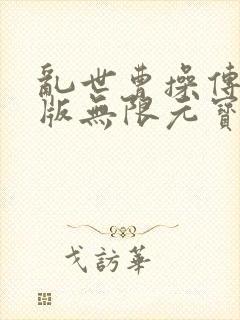 亂世曹操傳
版無限元寶
戈訪華